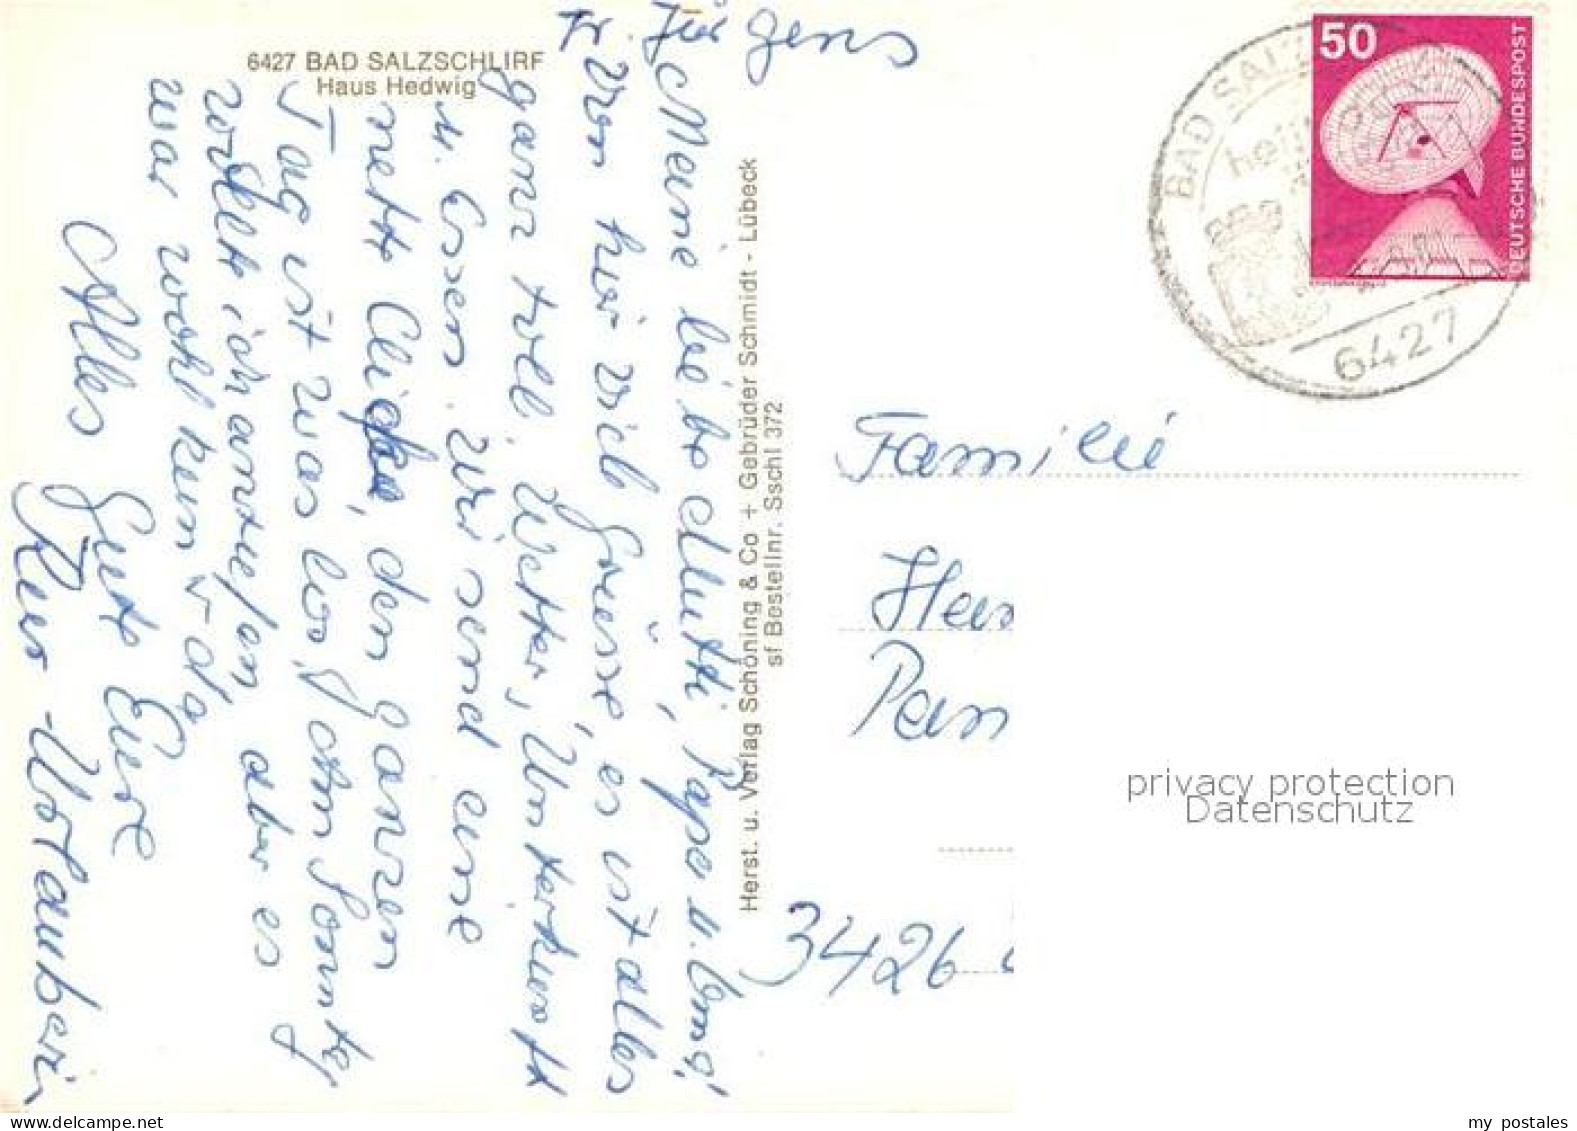 Fr. Jürgens
6427 BAD SALZSCHLIRF
Haus Hedwig
Meine liebe Mutti, Papa u. Omi!
Von hier viele Grüsse, es ist alles
ganz toll. Wetter, Unterkunft
u. Essen. Wir sind eine
nette Clique, den ganzen
Tag ist was los! Am Sonntg
wollte ich anrufen, aber es
war wohl kein r da
Alles Gute Eure
Kur-Urlauberin
Herst. u. Verlag Schöning & Co + Gebrüder Schmidt - Lübeck
sf Bestellnr. Sschl 372
50
DEUTSCHE BUNDESPOST
BAD SALZ
heil
6427
Familie
3426
privacy protection
Datenschutz
my postales